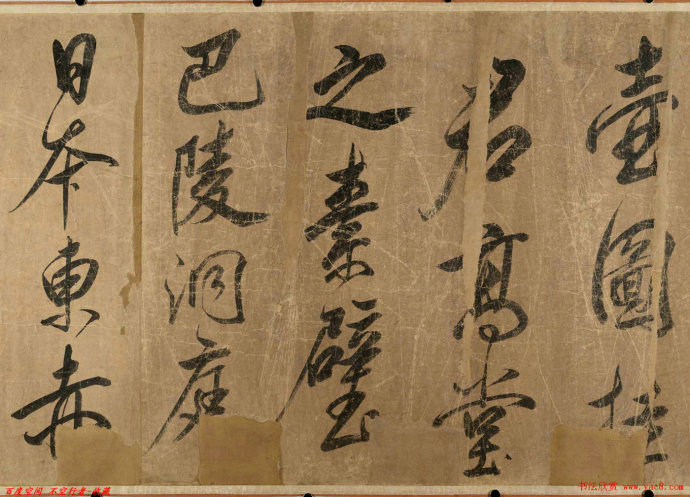 壺圖挂
君髙堂
之素壁
巴陵洞庭
日本東赤
百度空间 不空行者-收藏
书法欣赏 www.yac8.com